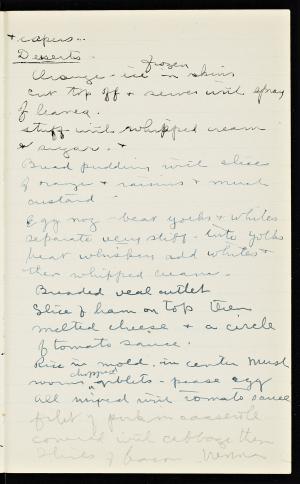 + capers...
Desserts.
frozen
Orange-ice in skins
cut top off + serve with spray
of leaves.
stuff with whipped cream
& sugar. +
Bread pudding with slice
of orange + raisins + much
custard -
Egg nog - beat yolks + whites
separate very stiff - into yolks
beat whiskey add whites +
then whipped cream.
Breaded veal cutlet
Slice of ham on top then
melted cheese + a circle
of tomato sauce.
Rice in mold. in center must
chopped
giblets - egg
all mixed with tomato sauce
filet of pork in casserole
covered with cabbage then
slices of bacon Vienna